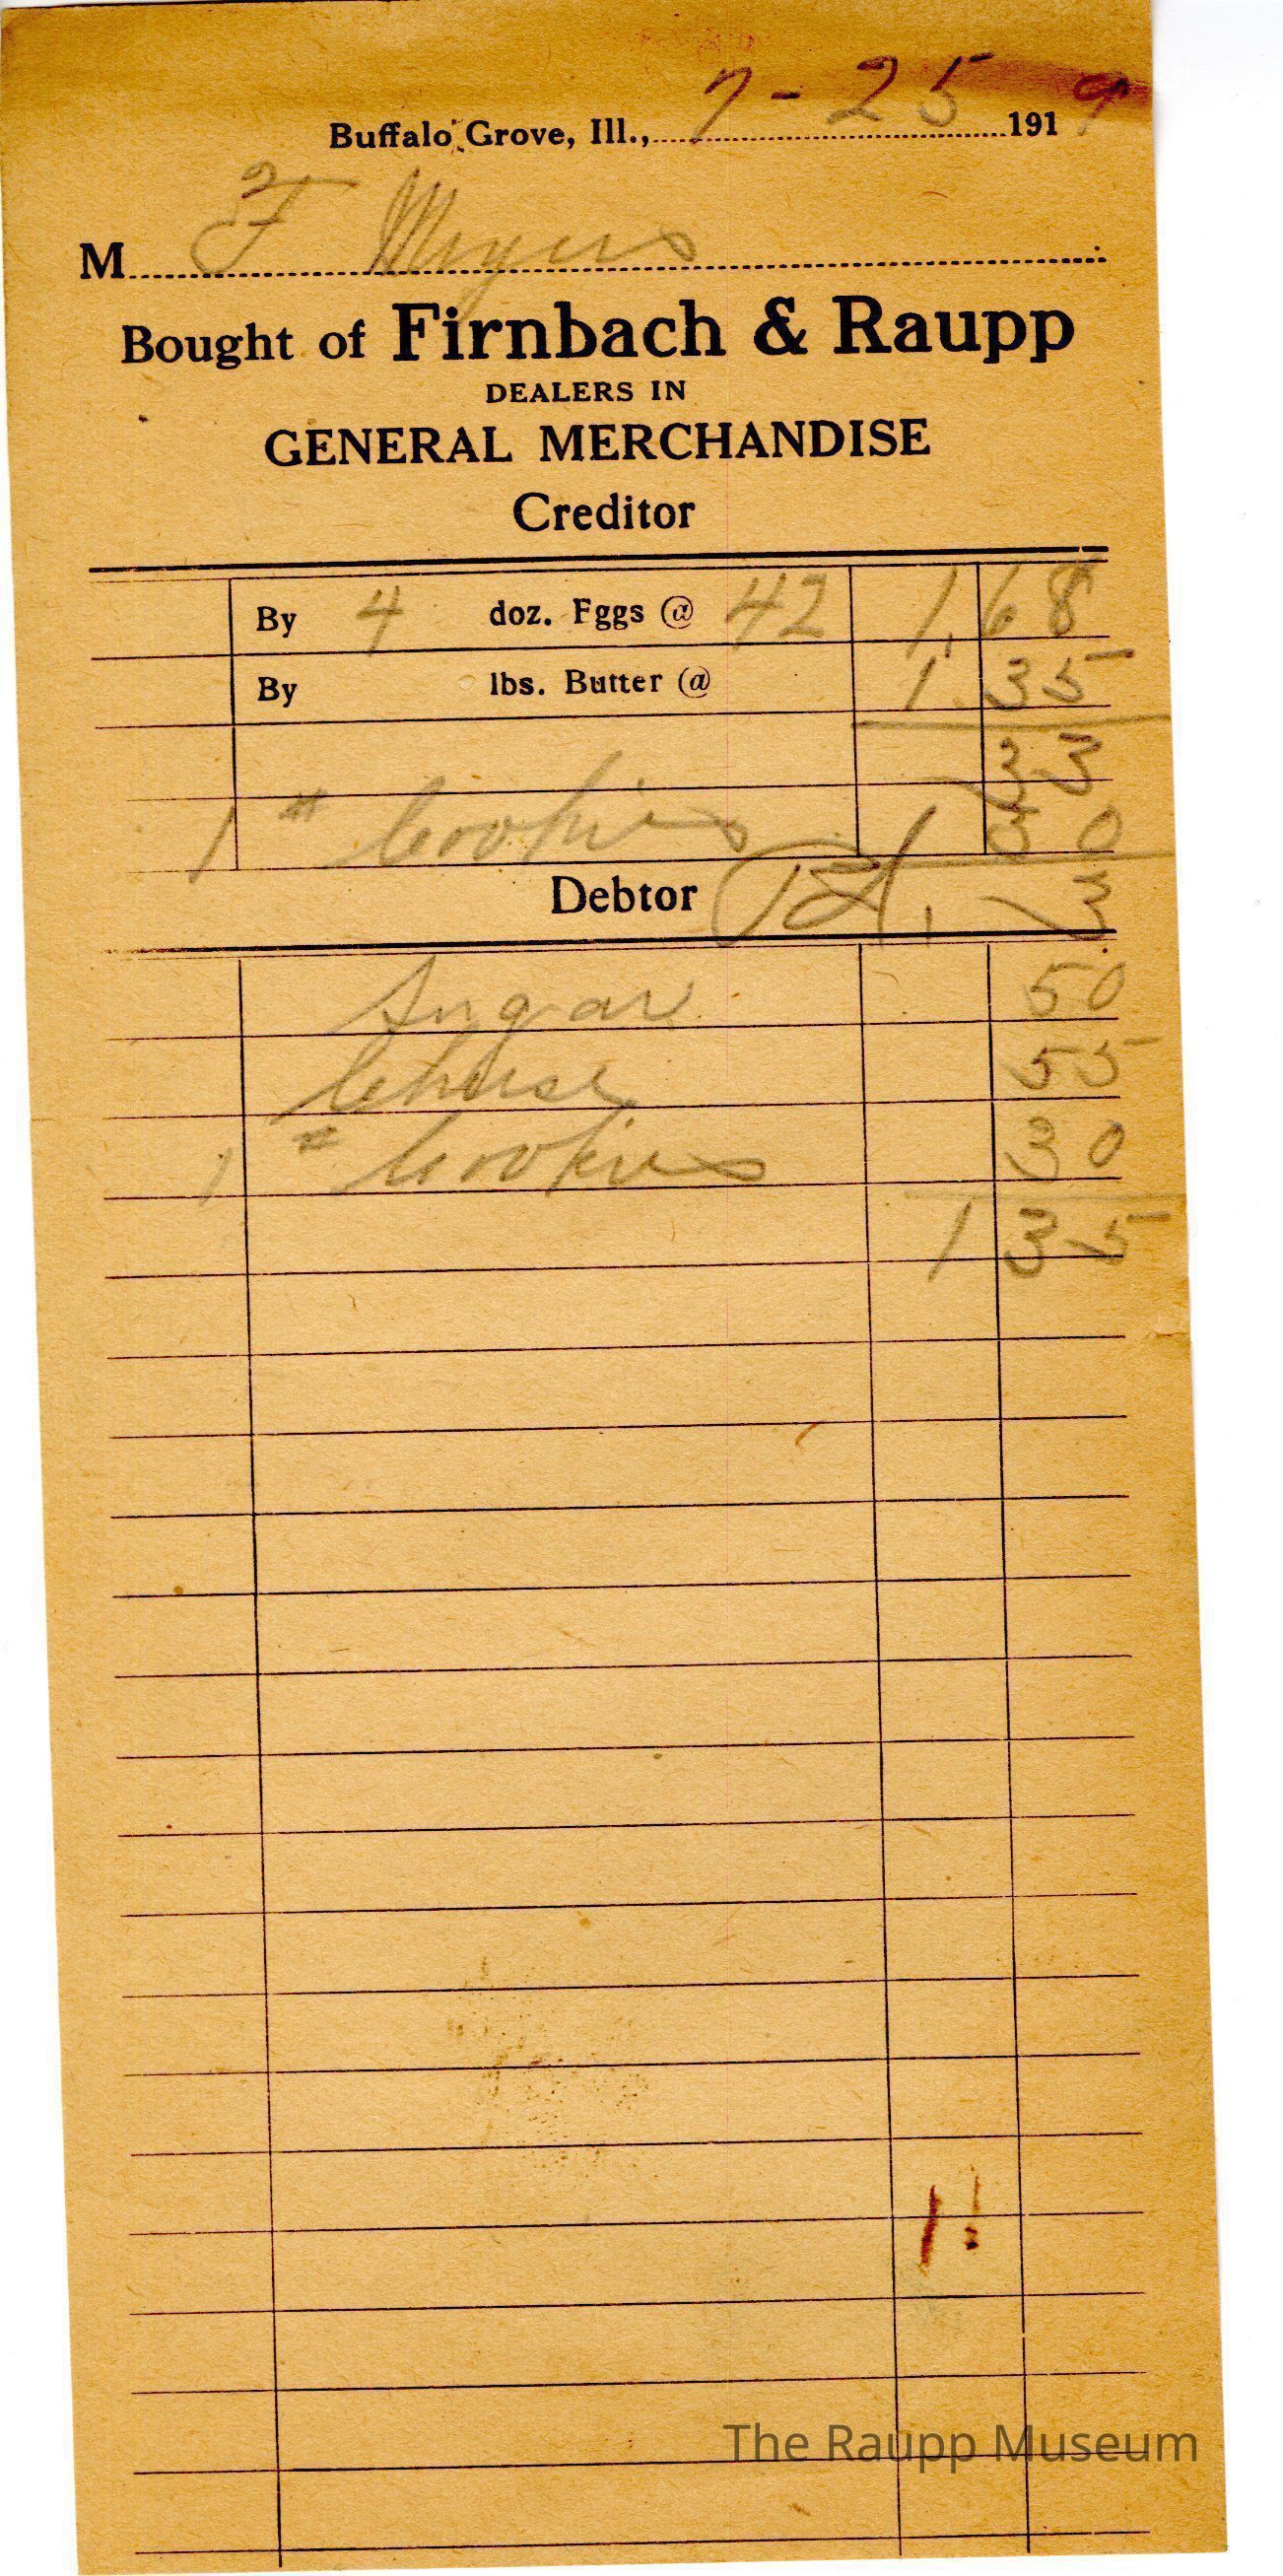 Buffalo Grove, Ill., 7-25 1919
M F Meyers
Bought of Firnbach & Raupp
DEALERS IN
GENERAL MERCHANDISE
Creditor
By 4 doz. Fggs @ 42 1,68
By lbs. Butter @ 1.35
33
1 # Cookies 30
Debtor 3
Sugar 50
Cheese 55
1 # Cookies 30
1 35
The Raupp Museum